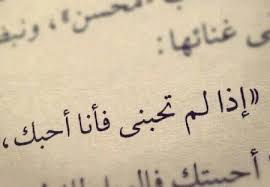 «محسن»، ونبض
غنائها:
«إذا لم تحبنى فأنا أحبك،
أحببتك